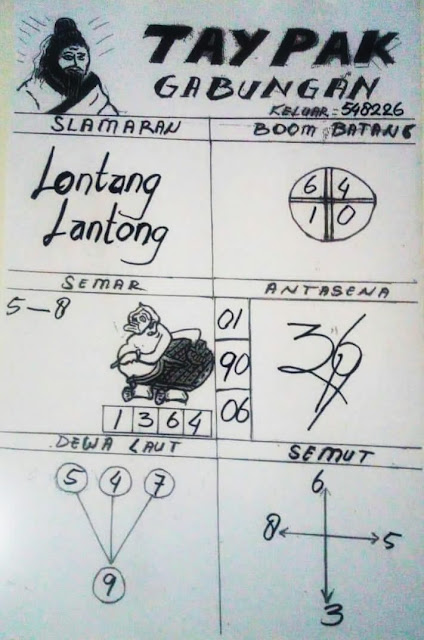 TAYPAK
GABUNGAN
KELUAR = 548226
SLAMARAN
BOOM BATANG
Lontang
Lantong
6 4
1 0
SEMAR
ANTASENA
5-8
01
90
06
1 3 6 4
DEWA LAUT
SEMUT
5 4 7
9
6
8 5
3